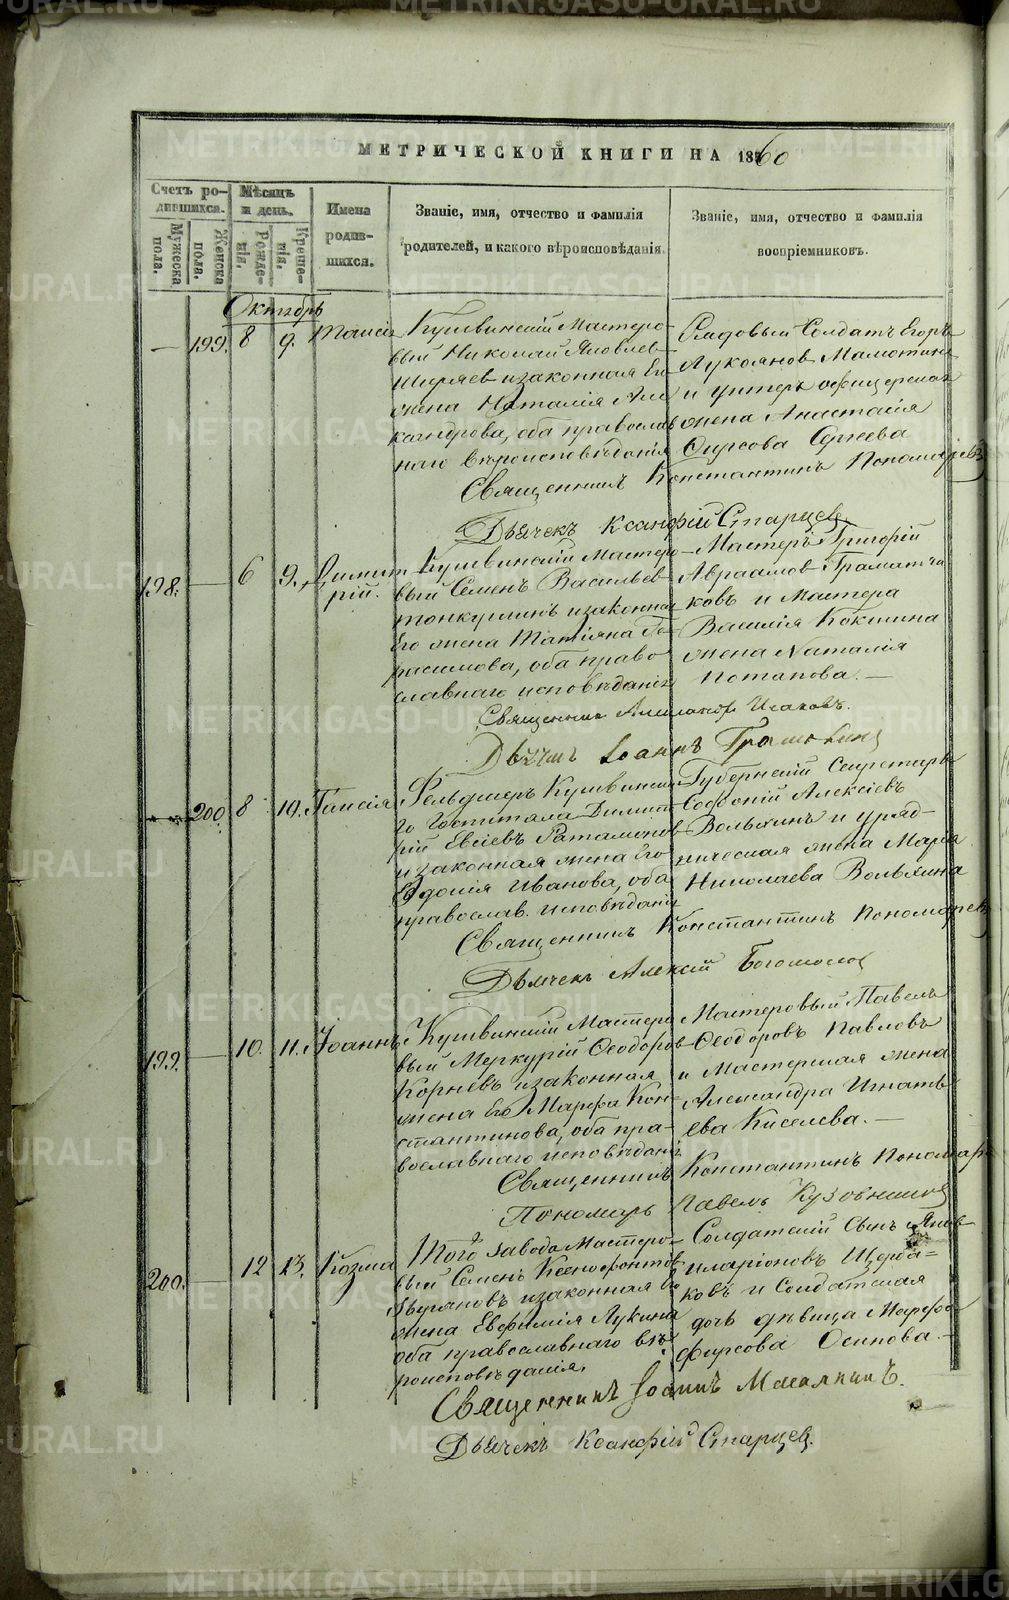 МЕТРИЧЕСКОЙ КНИГИ НА 1860
Счетъ родившихся.
Мужеска пола.
Женска пола.
Мѣсяцъ и день.
Рожденія.
Крещенія.
Имена родившихся.
Званіе, имя, отчество и фамилія
родителей, и какого вѣроисповѣданія.
Званіе, имя, отчество и фамилія
воспріемниковъ.
Октябрь
199. 8 9. Таисія
Кушвинскій Мастеро-
вый Николай Яковлев
Ширяев и законная Его
жена Наталія Алек
сандрова, оба православ
наго вѣроисповѣданія
Рядовый Солдатъ Егоръ
Лукояновъ
и унтеръ офицерская
жена Анастасія
Фирсова Сергеева
Священникъ Константинъ Пономаревъ
Дьячекъ Ксанфій Старцев
198. 6 9. Димит
рій.
Кушвинскій Мастеро-
вый Семенъ Васильев
и законная
Его жена Татіяна Ге-
расимова, оба право
славнаго исповѣданія
Мастеръ Григорій
Авраамов Граматчи
ковъ и Мастера
Василія Кокшина
жена Наталія
Потапова.
Священник Александр Исаковъ.
Дьячекъ Іоаннъ
200. 8 10. Таисія
Фельдшеръ Кушвинска
го Госпиталя Димит
рій Евсіевъ Ратамонов
и законная жена Его
Евдокія Иванова, оба
православ. исповѣданія
Губернскій Секретарь
Софоній Алексіевъ
Вольхинъ и уряд-
ническая жена Марія
Николаева Вольхина
Священникъ Константинъ Пономаревъ
Дьячекъ Алексій Богомолов
199. 10. 11. Іоаннъ
Кушвинскій Мастеро
вый Меркурій Ѳеодоров
Корневъ и законная
жена Его Марфа Кон-
стантинова, оба пра-
вославнаго исповѣданія
Мастеровый Павелъ
Ѳеодоровъ Павловъ
и Мастерская жена
Александра Игнать
ева Киселева.
Священникъ Константинъ Пономарев
Пономарь Павелъ Кузовников
200. 12 13. Козма
Того завода Мастеро-
вый Семенъ Ксенофонтов
и законная Его
жена Евфимія Лукина
оба православнаго вѣ-
роисповѣданія.
Солдатскій сынъ Яков
Иларіоновъ Щерба-
ковъ и Солдатская
дочь дѣвица Марфа
Фирсова Осипова.
Священникъ Іоаннъ
Дьячекъ Ксанфій Старцев.
METRIKI.GASO-URAL.RU